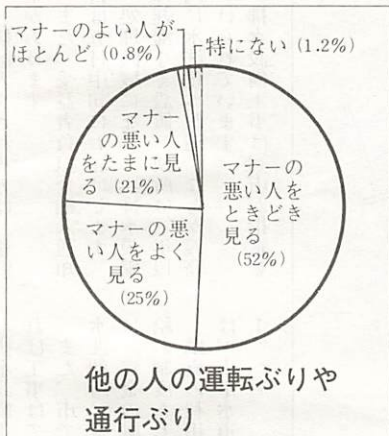 マナーのよい人が
ほとんど (0.8%)
特にない (1.2%)
マナー
の悪い人
をたまに見
る (21%)
マナーの
悪い人を
ときどき
見る
(52%)
マナーの悪
い人をよく
見る
(25%)
他の人の運転ぶりや
通行ぶり